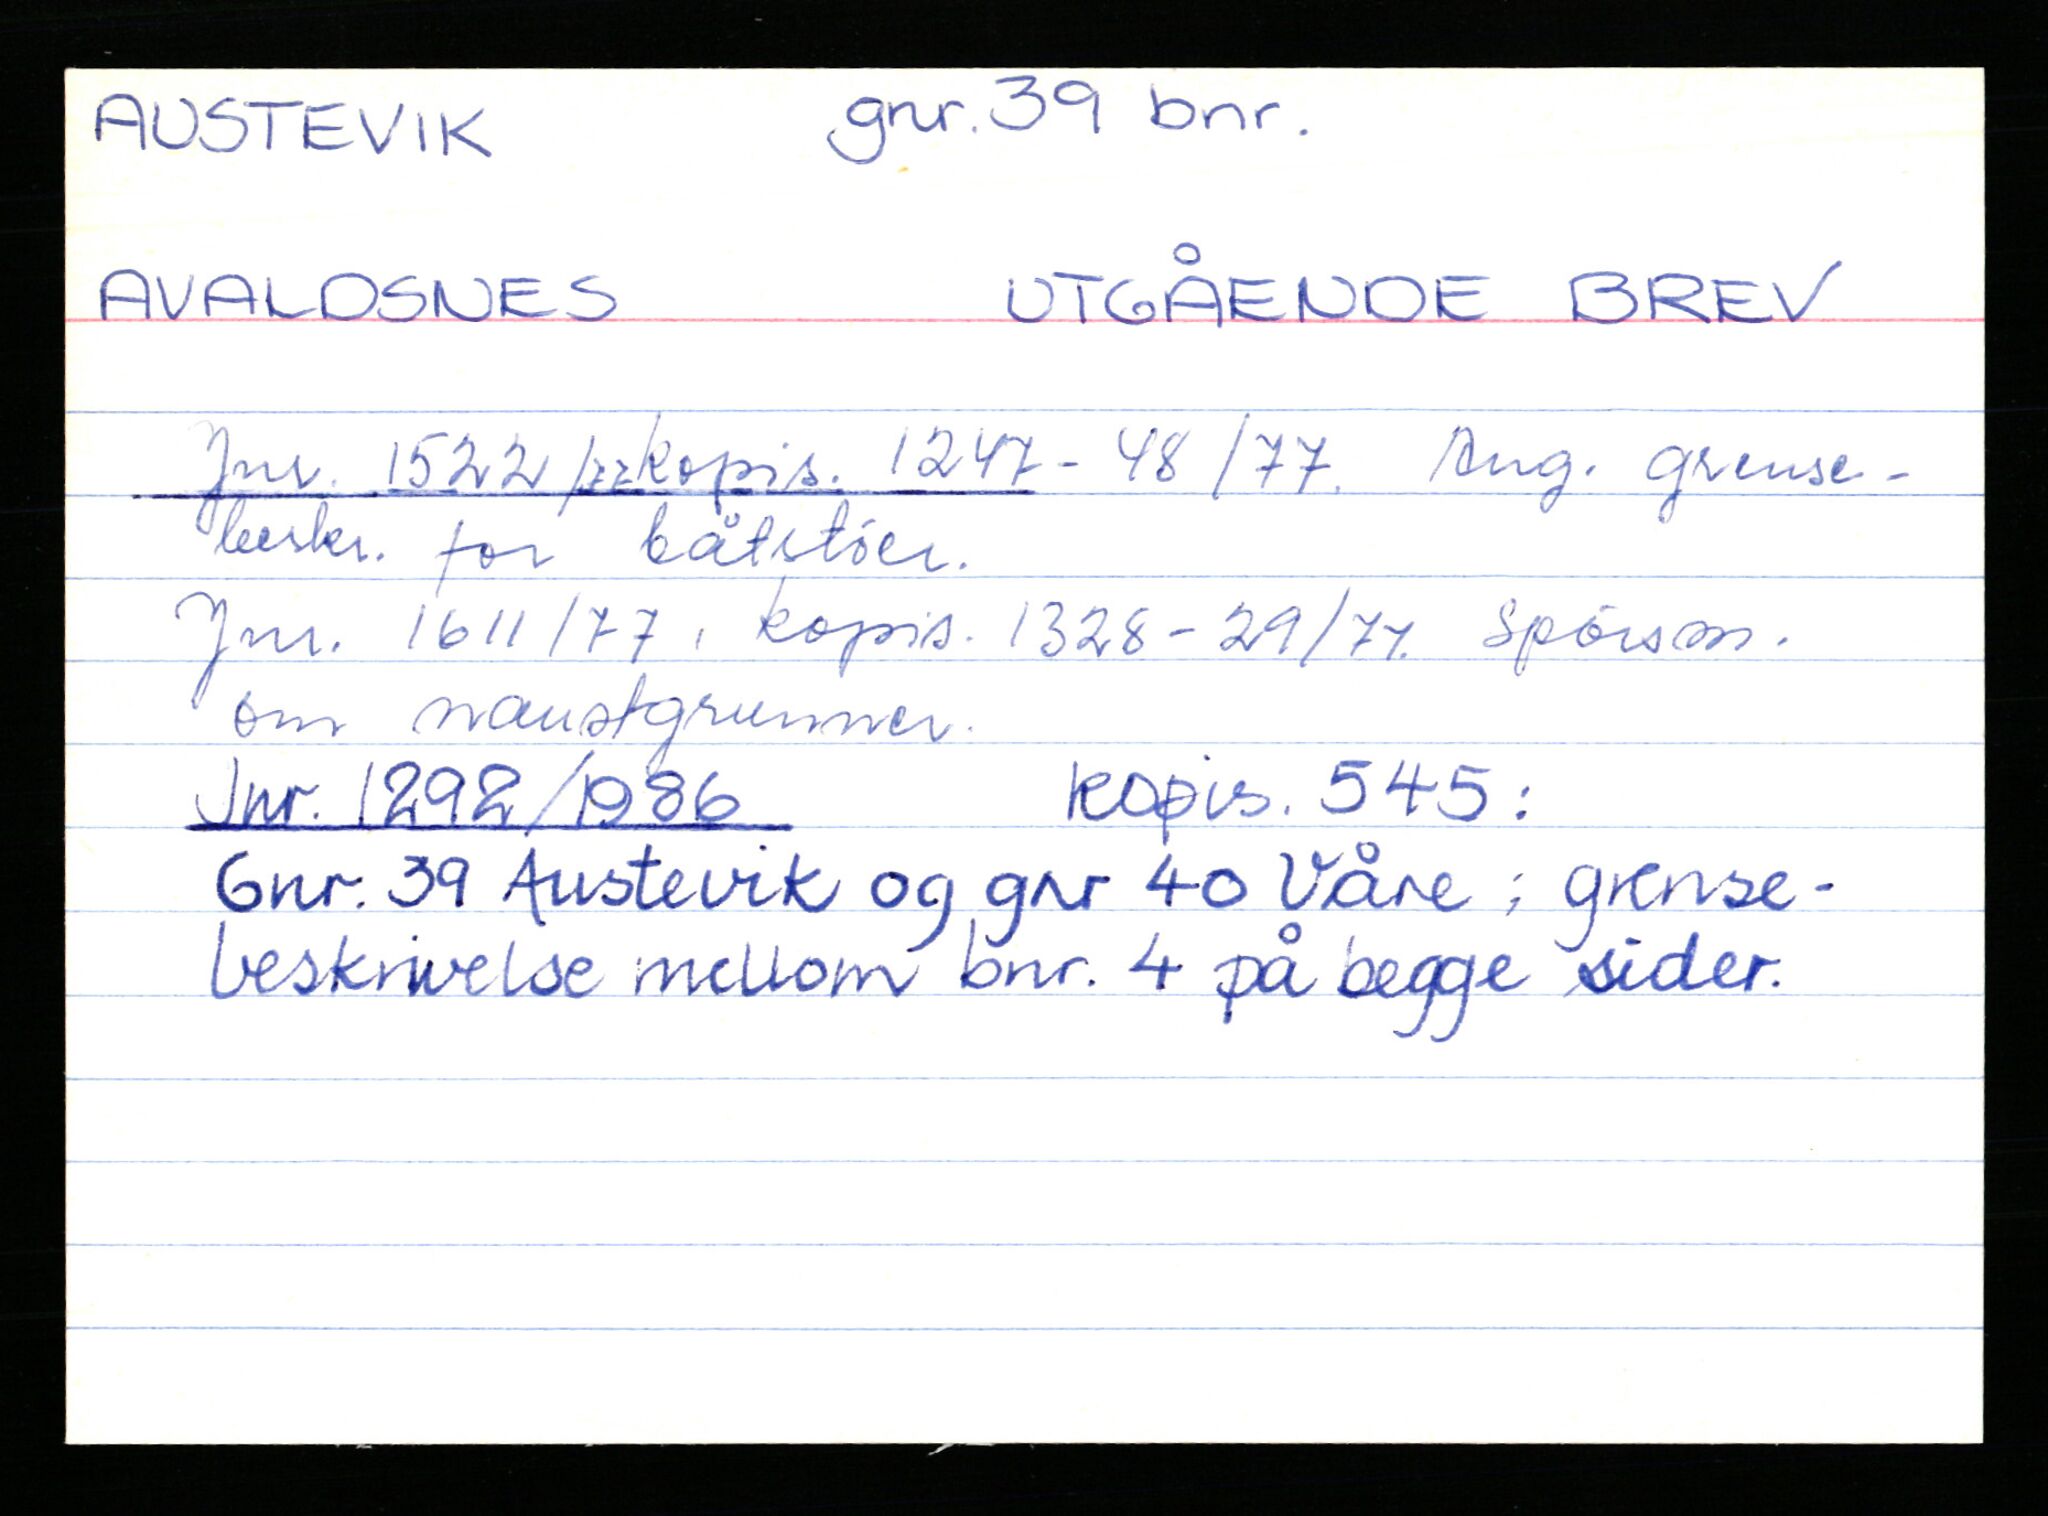 AUSTEVIK gnr. 39 bnr.
AVALDSNES UTGÅENDE BREV
Jnr. 1522/77 kopis. 1247-48/77. Ang. grense-
beskr. for båtstöer.
Jnr. 1611/77, kopis. 1328-29/77. Spörsm.
om naustgrunner.
Jnr. 1292/1986 kopis. 545:
Gnr. 39 Austevik og gnr 40 Våre; grense-
beskrivelse mellom bnr. 4 på begge sider.